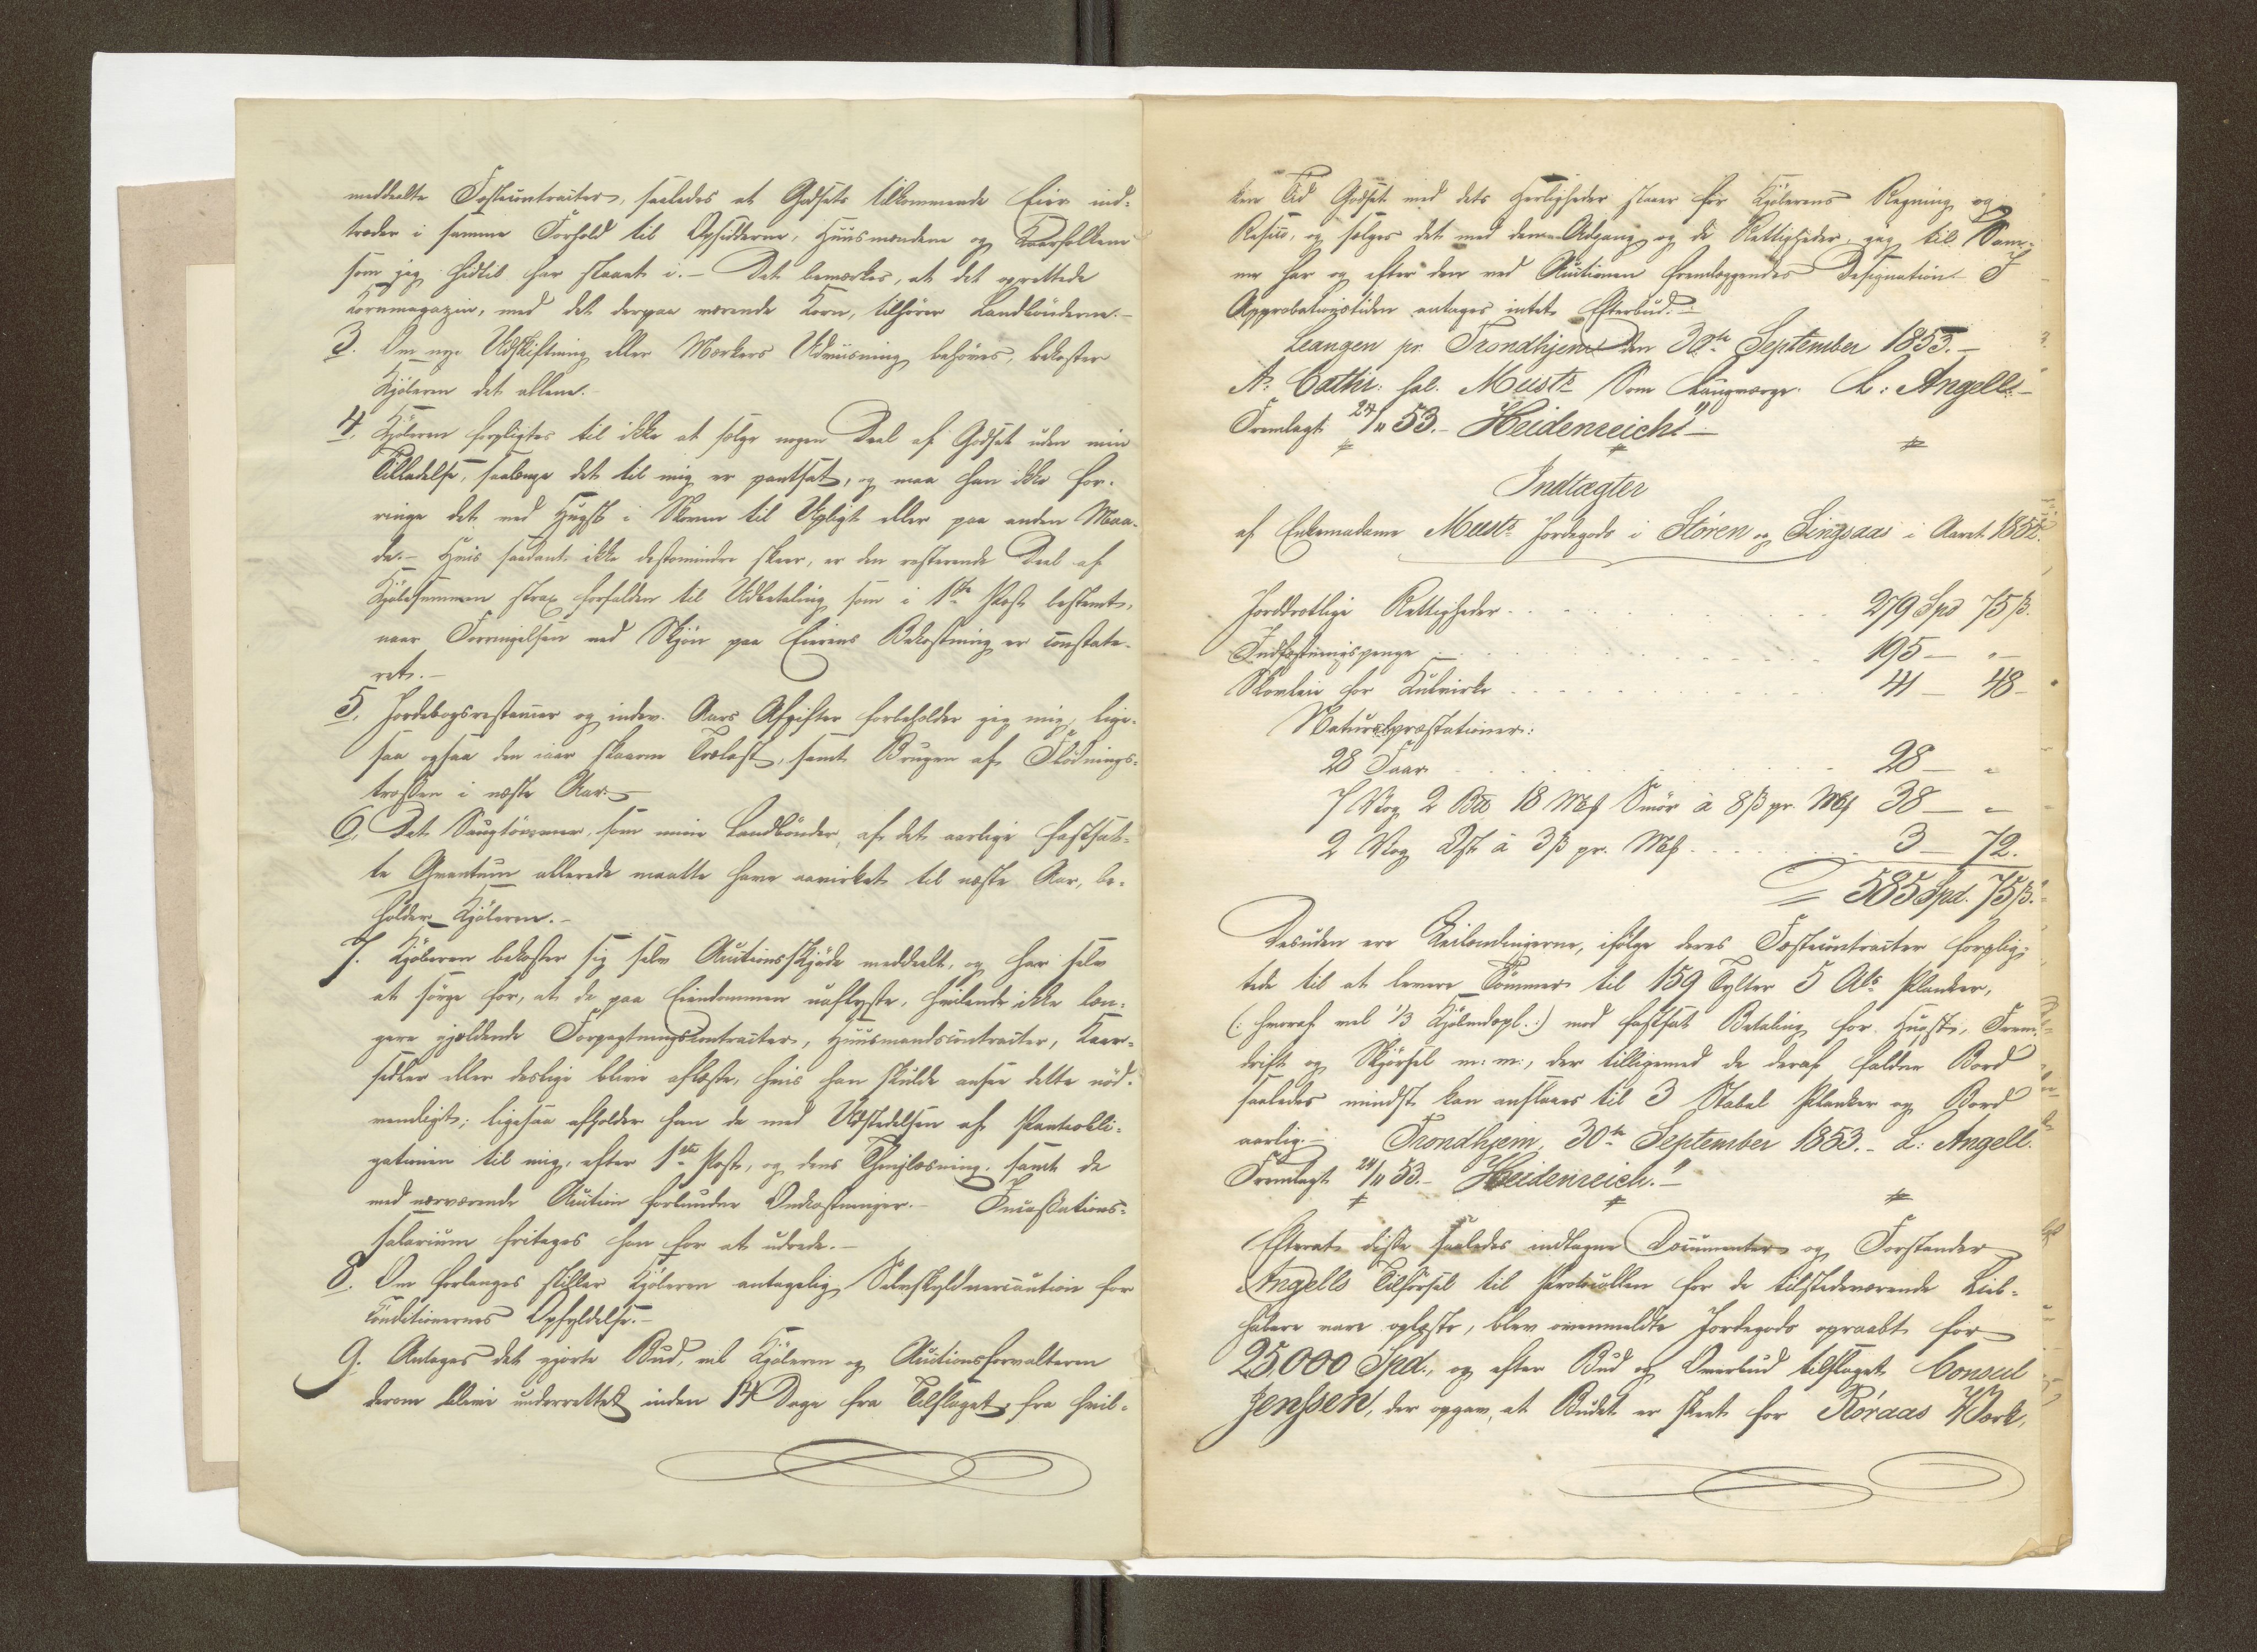 meddeelte Fæstecontracter, saaledes at Godsets tilkommende Eier ind-
træder i samme Forhold til Opsidderne, Huusmændene og Kaarfolkene
som jeg hidtil har staaet i. – Det bemærkes, at det oprettede
Kornmagazin, med det derpaa værende Korn, tilhører Landbönderne. –
3. Om nye Udskiftning eller Mærkers Udviisning behöves, bekoster
Kjöberen det allene. –
4. Kjöberen forpligtes til ikke at sælge nogen Deel af Godset uden min
Tilladelse, saalænge det til mig er pantsat, og maa han ikke for-
ringe det ved Hugst i Skoven til Upligt eller paa anden Maa-
de. – Hvis saadant ikke destomindre skeer, er den resterende Deel af
Kjöbesummen strax forfalden til Udbetaling som i 1ste Post bestemt,
naar Forringelsen ved Skjön paa Eierens Bekostning er constate-
ret. –
5. Jordebogsrestancer og indev. Aars Afgifter forbeholder jeg mig, lige-
saa ogsaa den iaar skaarne Trælast, samt Brugen af Flödnings-
trossen i næste Aar. –
6. Det Saugtömmer, som mine Landbönder, af det aarlige fastsat-
te Qvantum allerede maatte have aavirket til næste Aar, be-
holder Kjöberen. –
7. Kjöberen bekoster sig selv Auctionsskjöde meddeelt, og har selv
at sörge for, at de paa Eiendommen uaflyste, hvilende ikke læn-
gere gjældende Forpagtningscontracter, Huusmandscontracter, Kaar-
sedler eller deslige blive aflæste, hvis han skulde ansee dette nöd-
vendigt; ligesaa afholder han de med Udstedelsen af Panteobli-
gationen til mig, efter 1ste Post, og dens Thinglæsning, samt de
med nærværende Auction forbundne Omkostninger. – Incassations-
salarium fritages han for at udrede. –
8. Om forlanges stiller Kjöberen antagelig Selvskyldnercaution for
Conditionernes Opfyldelse. –
9. Antages det gjorte Bud, vil Kjöberen og Auctionsforvalteren
derom blive underrettet inden 14 Dage fra Tilslaget, fra hvil-
ken Tid Godset med dets Herligheder staaer for Kjöberens Regning og
Risico, og sælges det med den Adgang og de Rettigheder, jeg til Sam-
me har og efter den ved Auctionen fremlæggendes Designation. I
Approbationstiden antages intet Efterbud. –
Leangen pr. Trondhjem den 30te September 1853. –
A: Cathr: sal. Musts Som Laugværge. L: Angell. –
Fremlagt 24/11 53. – Heidenreich." –
Indtægter
af Enkemadame Musts Jordegods i Stören og Singsaas i Aaret 1852.
Jorddrotlige Rettigheder 279 Spd 75 ß.
Indfæstningspenge 195 – "
Skovleie for Kulvirke 41 – 48 –
Naturalpræstationer:
28 Faar 28 – "
7 Vog 2 Bb 18 Mk Smör à 8 ß pr. Mk 38 – "
2 Vog Ost à 3 ß pr. Mk 3 – 72.
= 585 Spd. 75 ß.
Desuden ere Leilændingerne, ifölge deres Fæstecontracter forplig-
tede til at levere Tömmer til 159 Tylter 5 Als Planker,
(: hvoraf vel 1/3 Kjölmdopl. :) mod fastsat Betaling for Hugst, Frem-
drift og Skjörsel m: m:, der tilligemed de deraf faldne Bord
saaledes mindst kan anslaaes til 3 Stabel Planker og Bord
aarlig. – Trondhjem, 30te September 1853. – L: Angell.
Fremlagt 24/11 53. – Heidenreich." –
Efterat disse saaledes indtagne Documenter og Forstander
Angells Tilförsel til Protocollen for de tilstedeværende Lieb-
habere vare oplæste, blev ovenmeldte Jordegods opraabt for
25,000 Spd., og efter Bud og Overbud tilslaget Consul
Jenssen, der opgav, at Budet er skeet for Röraas Værk,